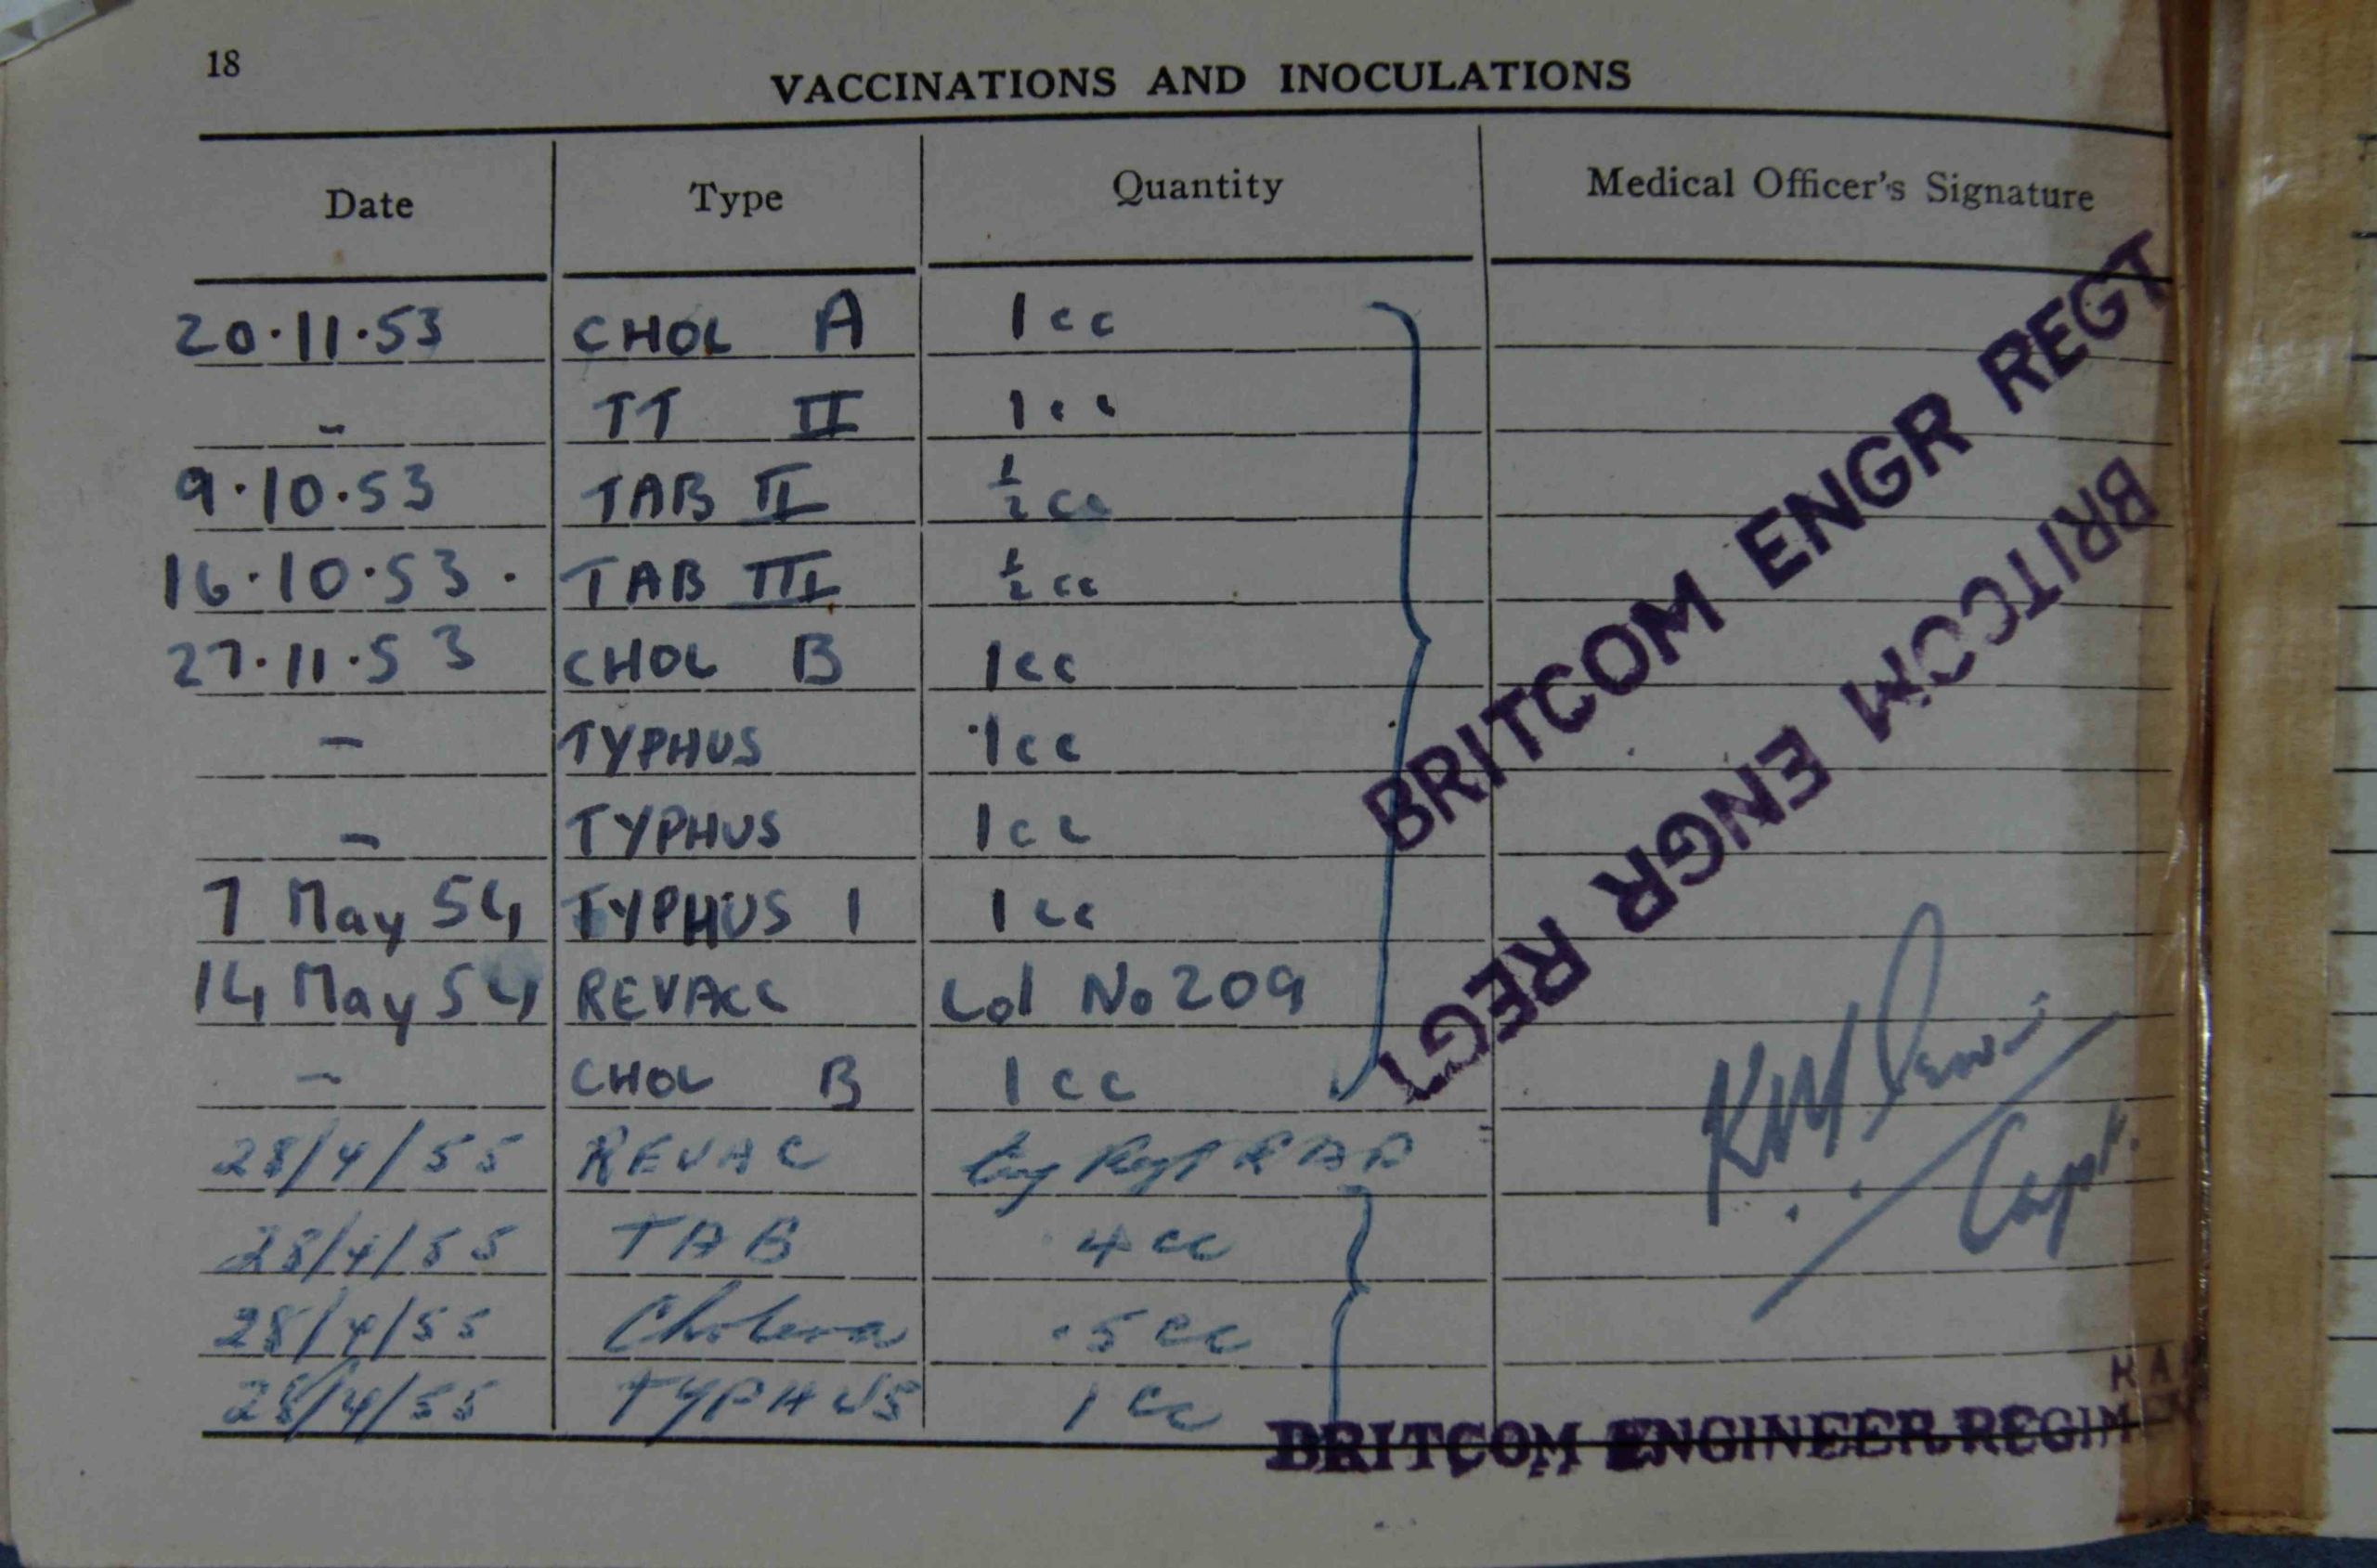 18
VACCINATIONS AND INOCULATIONS
Date Type Quantity Medical Officer's Signature
20.11.53 CHOL A 1cc
- TT II 1cc
9.10.53 TAB II ½cc
16.10.53. TAB III ½cc
27.11.53 CHOL B 1cc
- TYPHUS 1cc
- TYPHUS 1cc
7 May 54 TYPHUS 1 1cc
14 May 54 REVACC Lot No 209
- CHOL B 1cc
28/4/55 REVAC Regt RAP
28/4/55 TAB .4cc
28/4/55 Cholera .5cc
28/4/55 TYPHUS 1cc
BRITCOM ENGR REGT
BRITCOM ENGR REGT
Capt.
BRITCOM ENGINEER REGIM